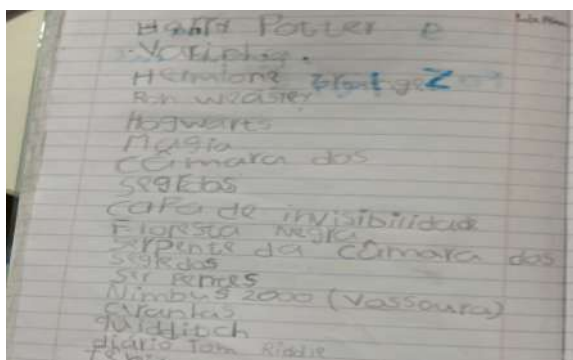 Harry Potter e
Hermione
Ron weasley
Hogwarts
Magia
Câmara dos
segredos
capa de invisibilidade
Floresta Negra
serpente da câmara dos
segredos
Nimbus 2000 (Vassoura)
quidditch
diario Tom Riddle